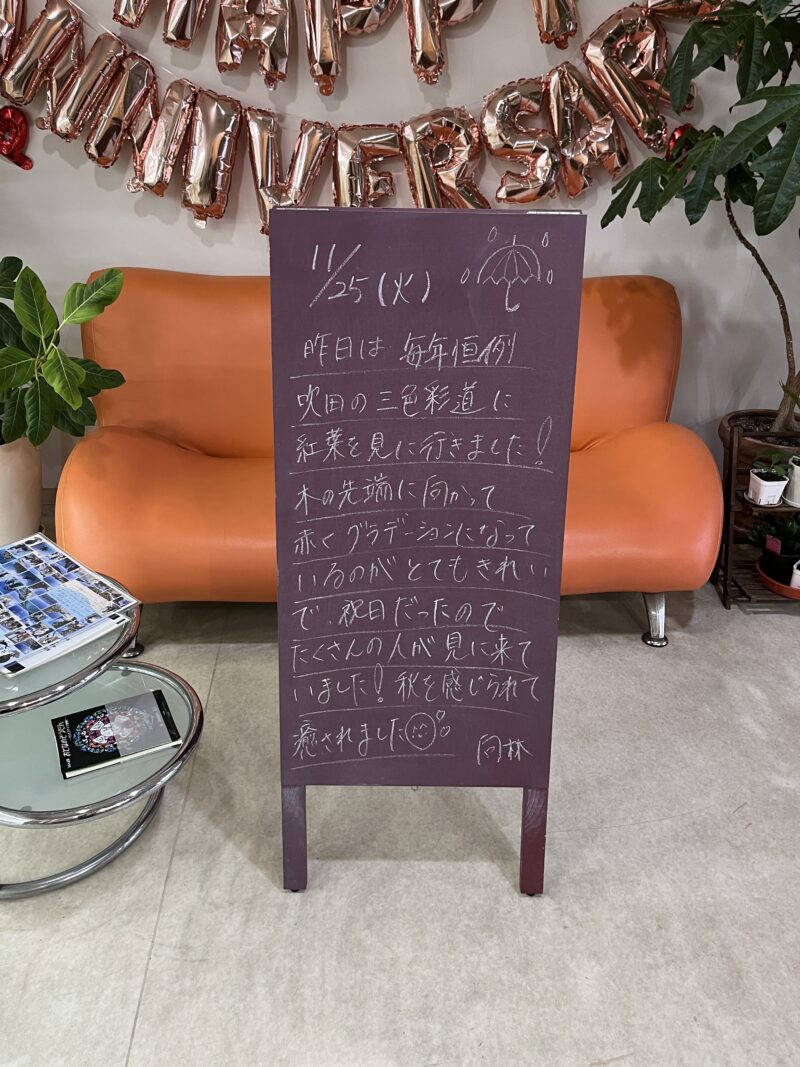 HAPPY
ANNIVERSARY
11/25(火)
昨日は 毎年恒例
吹田の三色彩道に
紅葉を見に行きました!
木の先端に向かって
赤くグラデーションになって
いるのがとてもきれい
で、祝日だったので
たくさんの人が見に来て
いました! 秋を感じられて
癒されました
向林